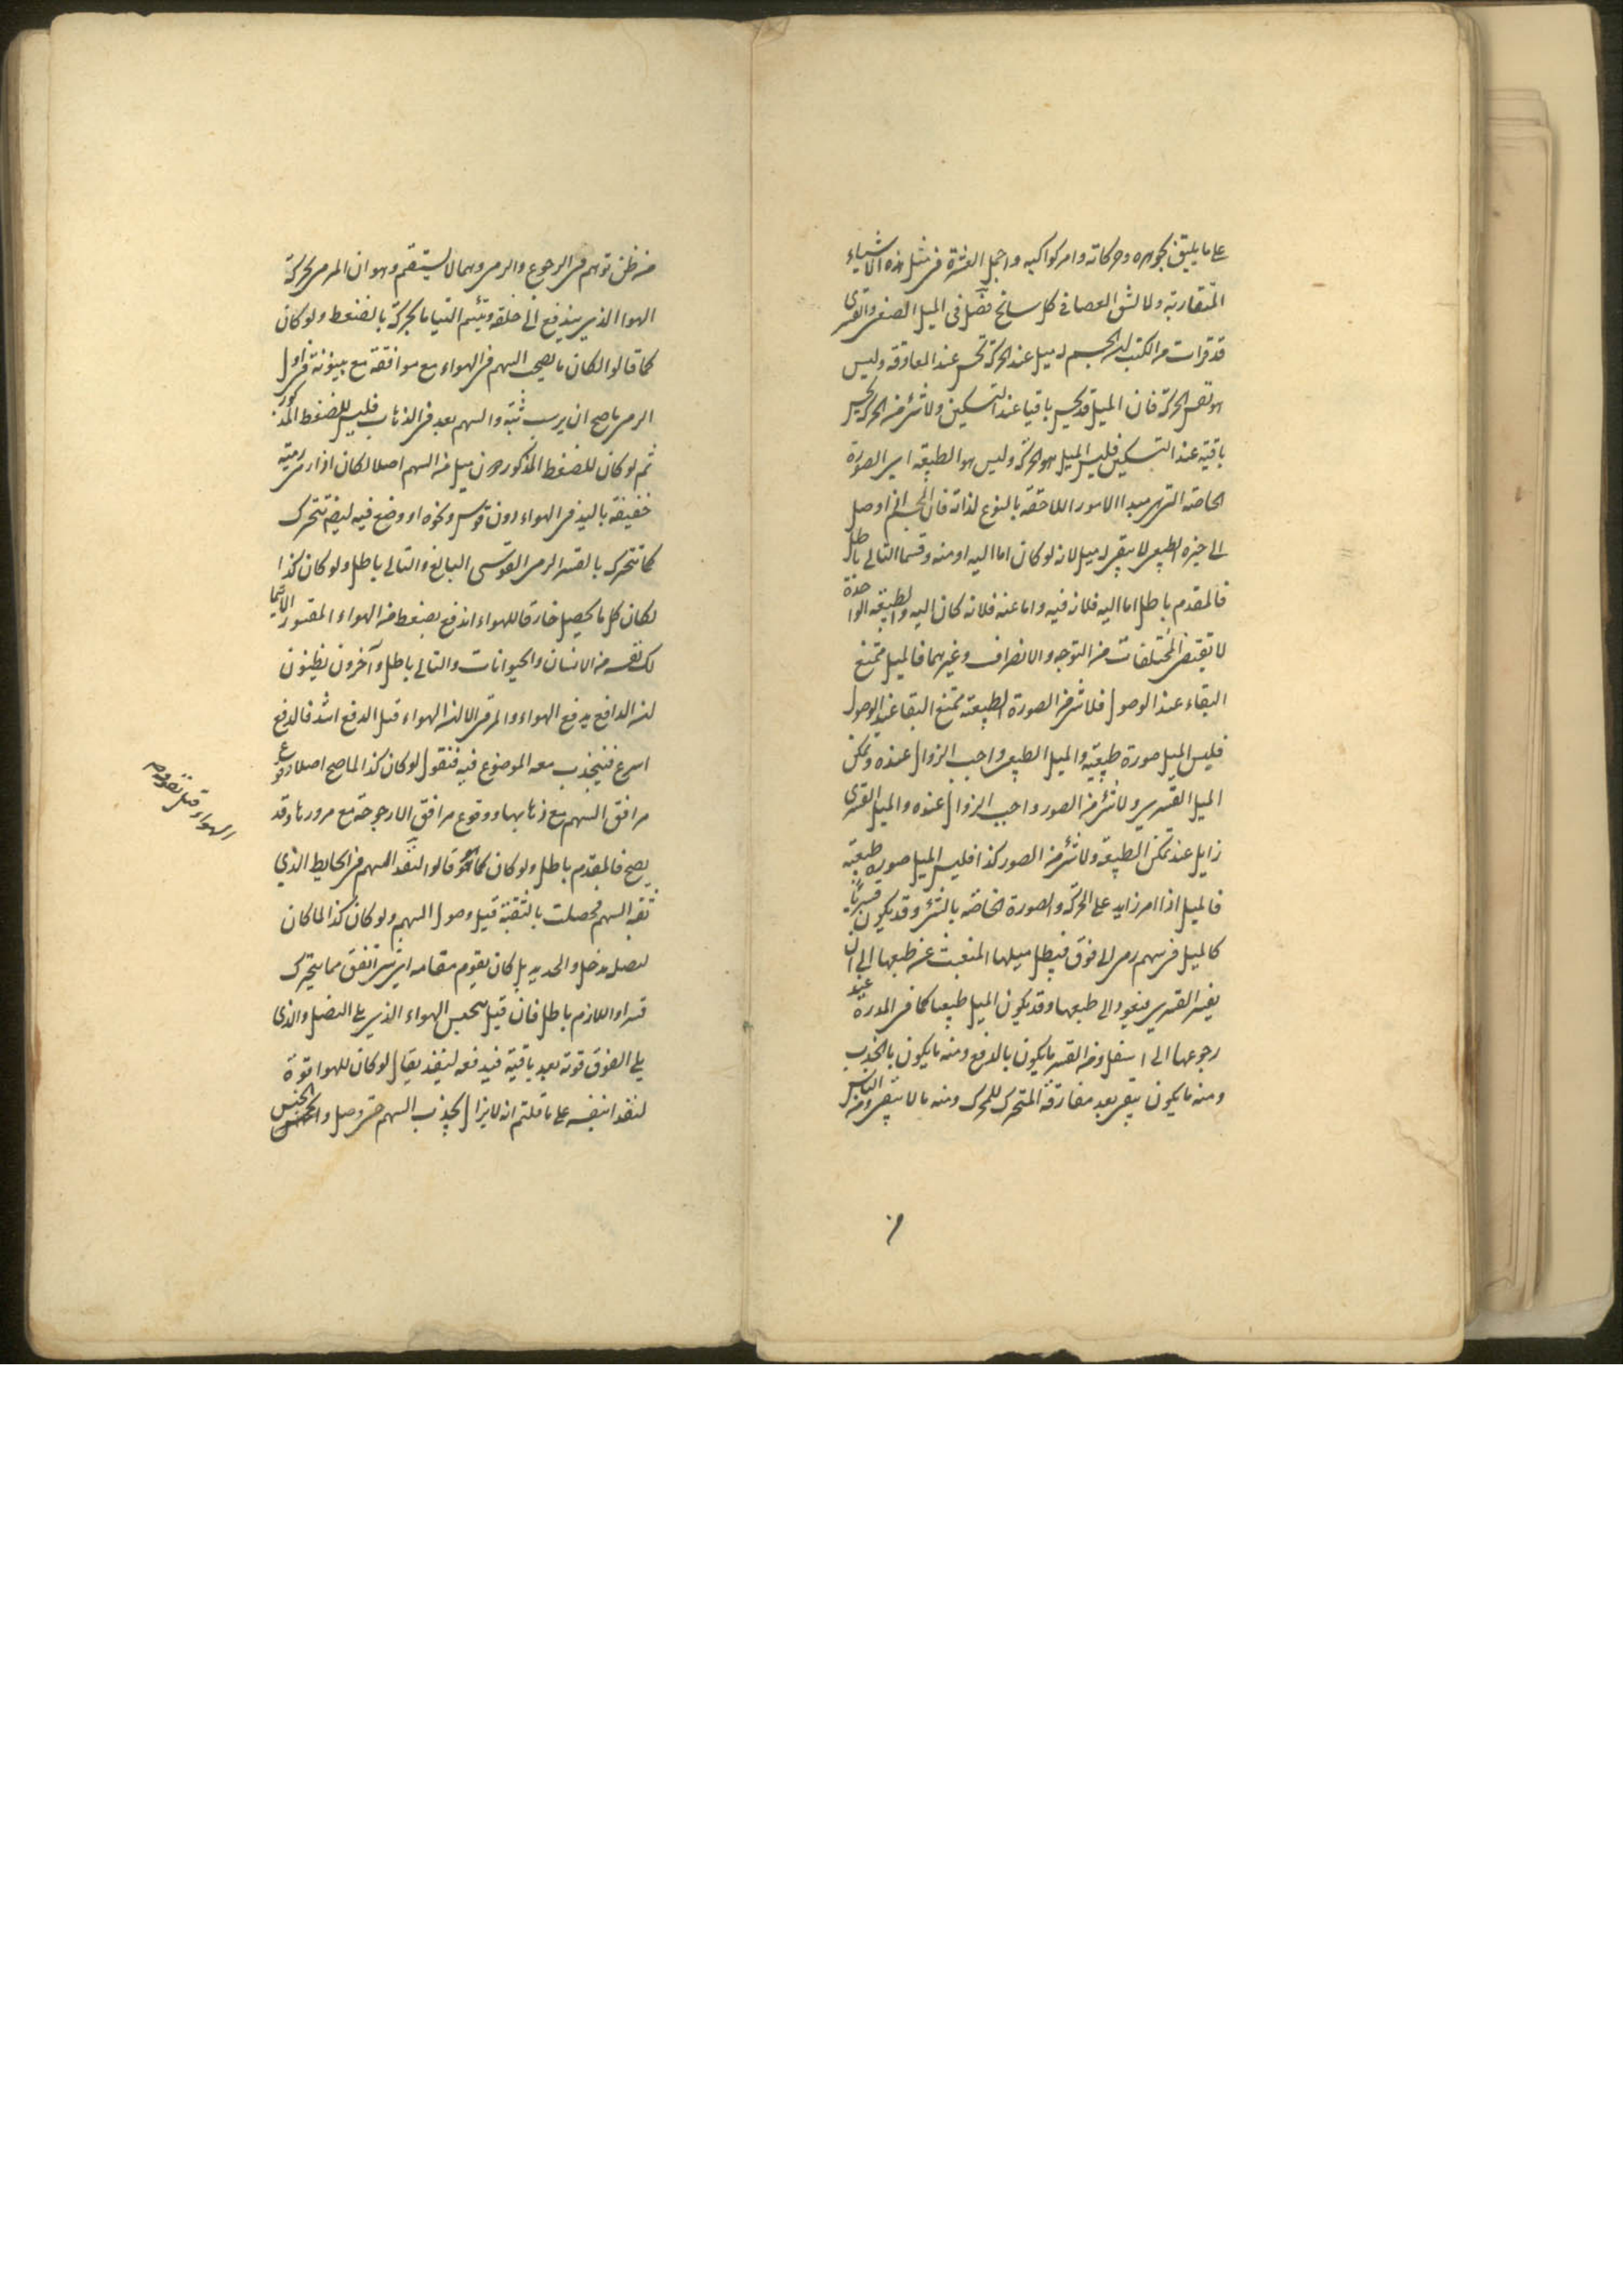 على ما يليق بجوهره وحركاته وامر كواكبه واجمل العشرة في مثل هذه الاشياء
المتقاربة ولا تشق العصا في كل سانح فصل في الميل الطبيعى والقسرى
قد قرات من الكتب ان الجسم له ميل عند الحركة تحس عند المعاوقة وليس
هو نفس الحركة فان الميل قد يحس باقيا عند التسكين ولا شئ من الحركة يحس
باقية عند التسكين فليس الميل هو الحركة وليس هو الطبيعة اى الصورة
الخاصة التى هى مبدا الامور اللاحقة بالنوع لذاته فان الجسم اذا وصل
الى حيزه الطبيعى لا يبقى له ميل لانه لو كان اما اليه او منه وقسما التالى باطل
فالمقدم باطل اما اليه فلانه فيه واما عنه فلانه كان اليه والطبيعة الواحدة
لا تقتضى المختلفات من التوجه والانصراف وغيرهما فالميل ممتنع
البقاء عند الوصول فلا شئ من الصورة الطبيعية ممتنع البقا عند الوصول
فليس الميل صورة طبيعية والميل الطبيعى واجب الزوال عنده وتمكن
الميل القسرى ولا شئ من الصور واجب الزوال عنده والميل القسرى
زايل عند تمكن الطبيعة ولا شئ من الصور كذا فليس الميل صورة طبيعية
فالميل اذا امر زايد على الحركة والصورة الخاصة بالشئ وقد يكون قسريا
كالميل فى سهم رمى الى فوق فيبطل ميلها المنبعث عن طبعها الى ان
يفنى القسرى فيعود الى طبعها وقد يكون الميل طبيعيا كما فى المدرة عند
رجوعها الى اسفل ومن القسر ما يكون بالدفع ومنه ما يكون بالجذب
ومنه ما يكون يبقى بعد مفارقة المتحرك للمحرك ومنه ما لا يبقى ومن الناس
من ظن توهم فى الرجوع والرمى وهما لا يستقيم وهو ان المرمى يحركه
الهوا الذى يندفع الى خلفه ويلتئم التياما يحركه بالضغط ولو كان
كما قالوا لكان ما يصحب السهم فى الهواء مع موافقة مع بينونة فى اول
الرمى ما صح ان يرسب ثبه والسهم بعد فى الذهاب فليس للضغط المذكور
ثم لو كان للضغط المذكور دون ميل من السهم اصلا لكان اذا رمى رمية
خفيفة باليد فى الهواء دون قوس ونحوه او وضع فيه ليضم تتحرك
كما تتحرك بالقسر الرمى القوسى البالغ والتالى باطل ولو كان كذا
لكان كل ما يحصل خارقا للهواء اندفع بضغط من الهواء المقسور لا سيما
لك نفسه من الانسان والحيوانات والتالى باطل وآخرون يظنون
ان الدافع يدفع الهواء والمرمى الا ان الهواء قبل الدفع اشد فالدفع
اسرع فينجذب معه الموضوع فيه فنقول لو كان كذا لما صح اصلا وقوع
مرافق السهم مع ذهابها ووقوع مرافق الارجوحة مع مرورها وقد
يصح فالمقدم باطل ولو كان كما قالوا لنفذ السهم فى الحايط الذي
ثقبه السهم فحصلت بالثقبة قبل وصول السهم ولو كان كذا لما كان
لنصل مدخل والحديد بل كان يقوم مقامه اى شئ اتفق مما يتحرك
قسرا واللازم باطل فان قيل يحبس الهواء الذى يلى النصل والذى
يلى الفوق قوته بعد باقية فيدفعه لينفذ يقال لو كان للهوا قوة
لنفذ ا بنفسه على ما قلتم انه لا يزال يجذب السهم حتى وصل والحبس
الهواء قبل نفوذه